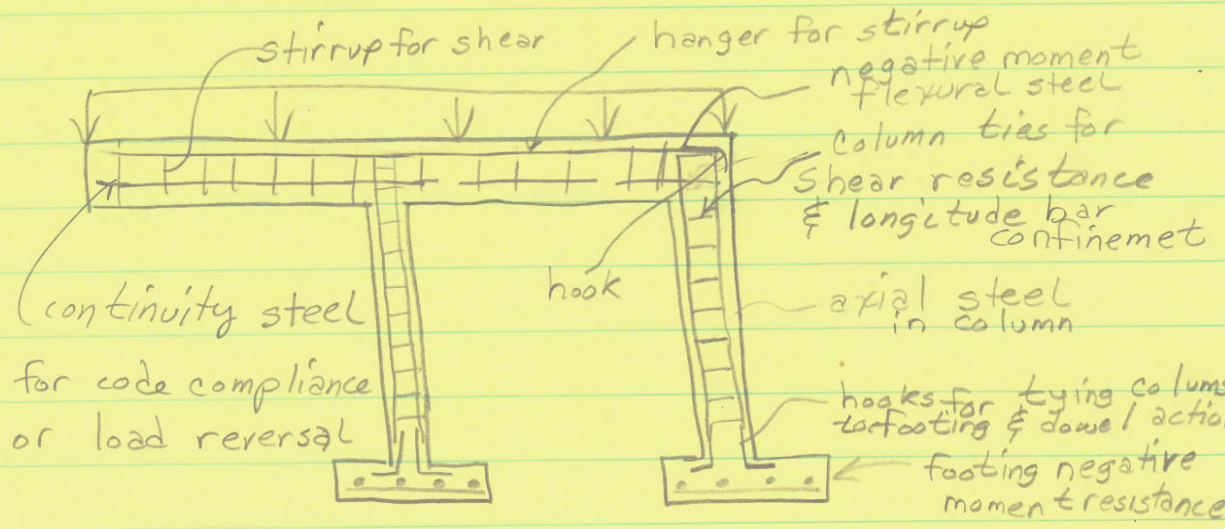 stirrup for shear
hanger for stirrup
negative moment
flexural steel
column ties for
shear resistance
& longitude bar
confinemet
hook
continuity steel
for code compliance
or load reversal
axial steel
in column
hooks for tying colums
to footing & dowel action
footing negative
moment resistance